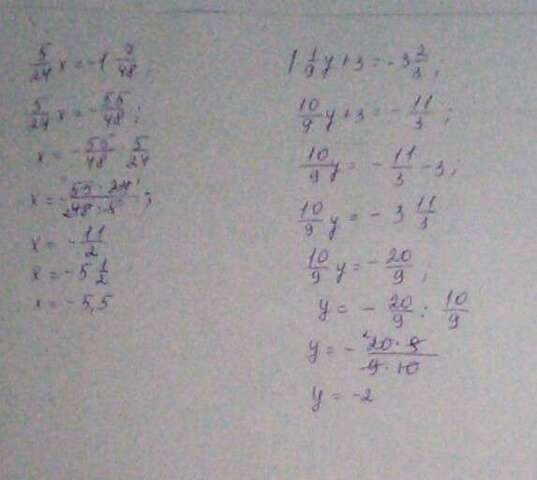 5/24 x = -1 7/48;
5/24 x = -55/48;
x = -55/48 : 5/24
x = -55·24/48·5;
x = -11/2
x = -5 1/2
x = -5,5
1 1/9 y + 3 = -3 2/3;
10/9 y + 3 = -11/3;
10/9 y = -11/3 - 3;
10/9 y = -3 11/3
10/9 y = -20/9;
y = -20/9 : 10/9
y = -20·9/9·10
y = -2